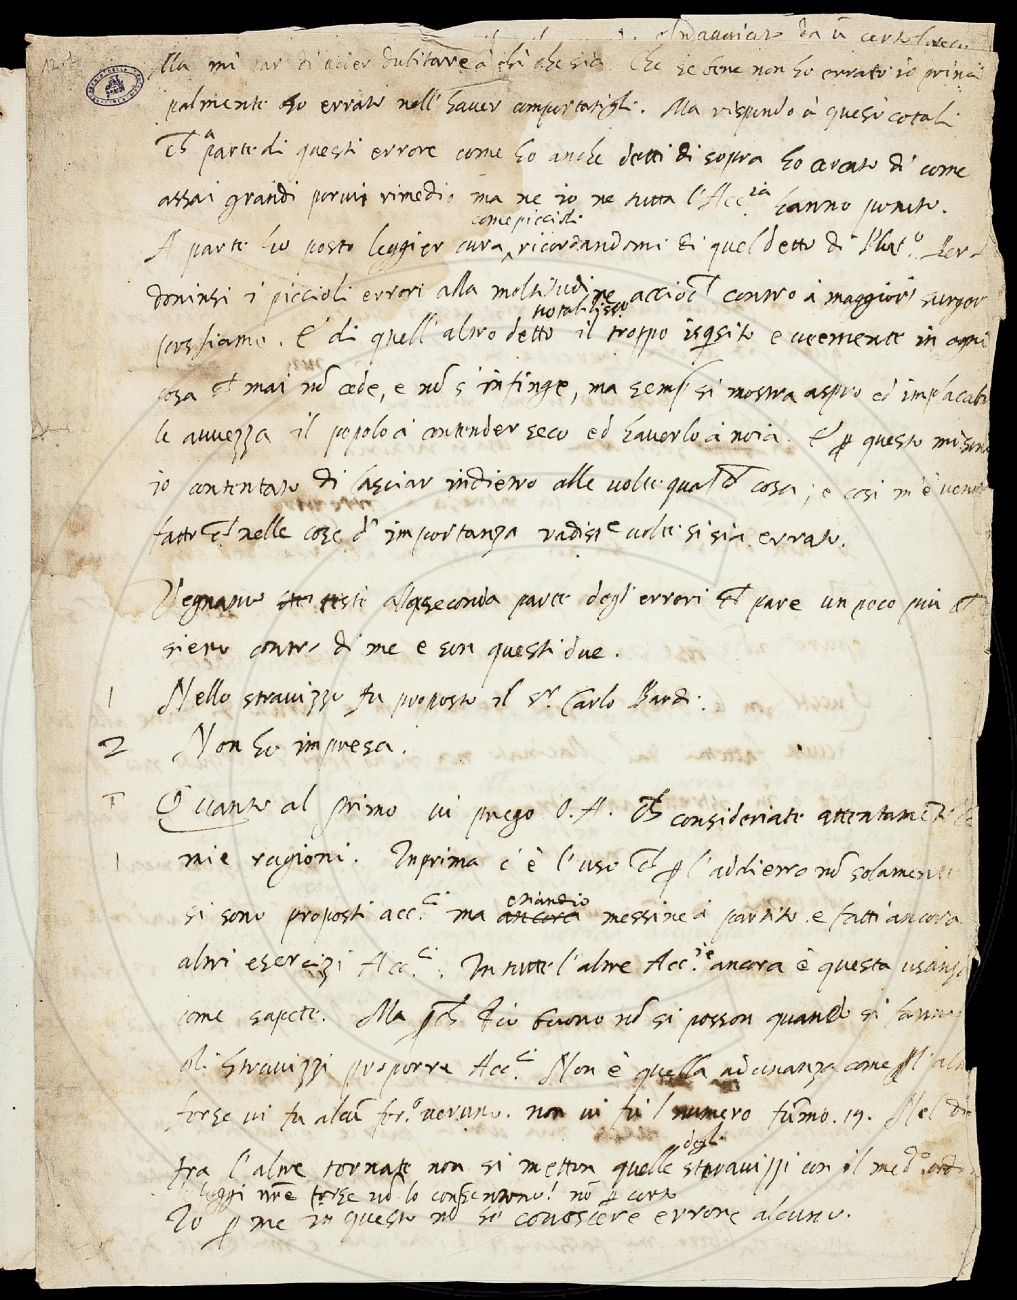 Ma mi par di veder dubitare à chi che sia che se bene non ho errato io princi
palmente ho errato nell'haver comportatigli. Ma rispondo à questi cotali
ch'a parte di questi errore come ho anche detti di sopra ho cercato di come
assai grandi porvi rimedio ma ne io ne tutta l'Acc.ia hanno potuto.
A parte ho posto leggier cura, come piccioli ricordandomi di quel detto di Plut.o Per
doninsi i piccioli errori alla moltitudine acciò ch contro a maggiori surger
possiamo. E di quell'altro detto notabiliss.o il troppo isquisito e veemente in ogni
cosa ch mai nō cede, e nō s'infinge, ma semp si mostra aspro ed implacabi
le avvezza il popolo à contender seco ed haverlo à noia. E p questo mi sono
io contentato di lasciar indietro alle volte qual ch cosa; e così m'è venuto
fatto ch nelle cose d'importanza radiss.e volte si sia errato.
Vegnamo alla seconda parte degl'errori ch pare un poco più ch
sieno contro di me e son questi due.
1 Nello stravizzo fu proposto il S.r Carlo Bardi.
2 Non ho impresa.
Quanto al primo vi prego O. A. ch consideriate attentamēte le
1 mie ragioni. Inprima c'è l'uso ch p l'addietro nō solamente
si sono proposti acc.ci ma ancora etiandio messine à partito e fatti ancora
altri esercizi Acc.ci. In tutte l'altre Acc.ie ancora è questa usanza
come sapete. Ma pch Dio buono nō si posson quando si fanno
gli Stravizzi proporre Acc.ci Non è quella adunanza come l'altre
forse vi fu alcū for.o veruno. non vi fu l numero fūmo. 19. Nel
tra l'altre tornate non si metton quelle degli stravizzi con il med.o
leggi nr̄e forse nō lo consentono! nō p certo
Io p me in questo nō so conoscere errore alcuno.